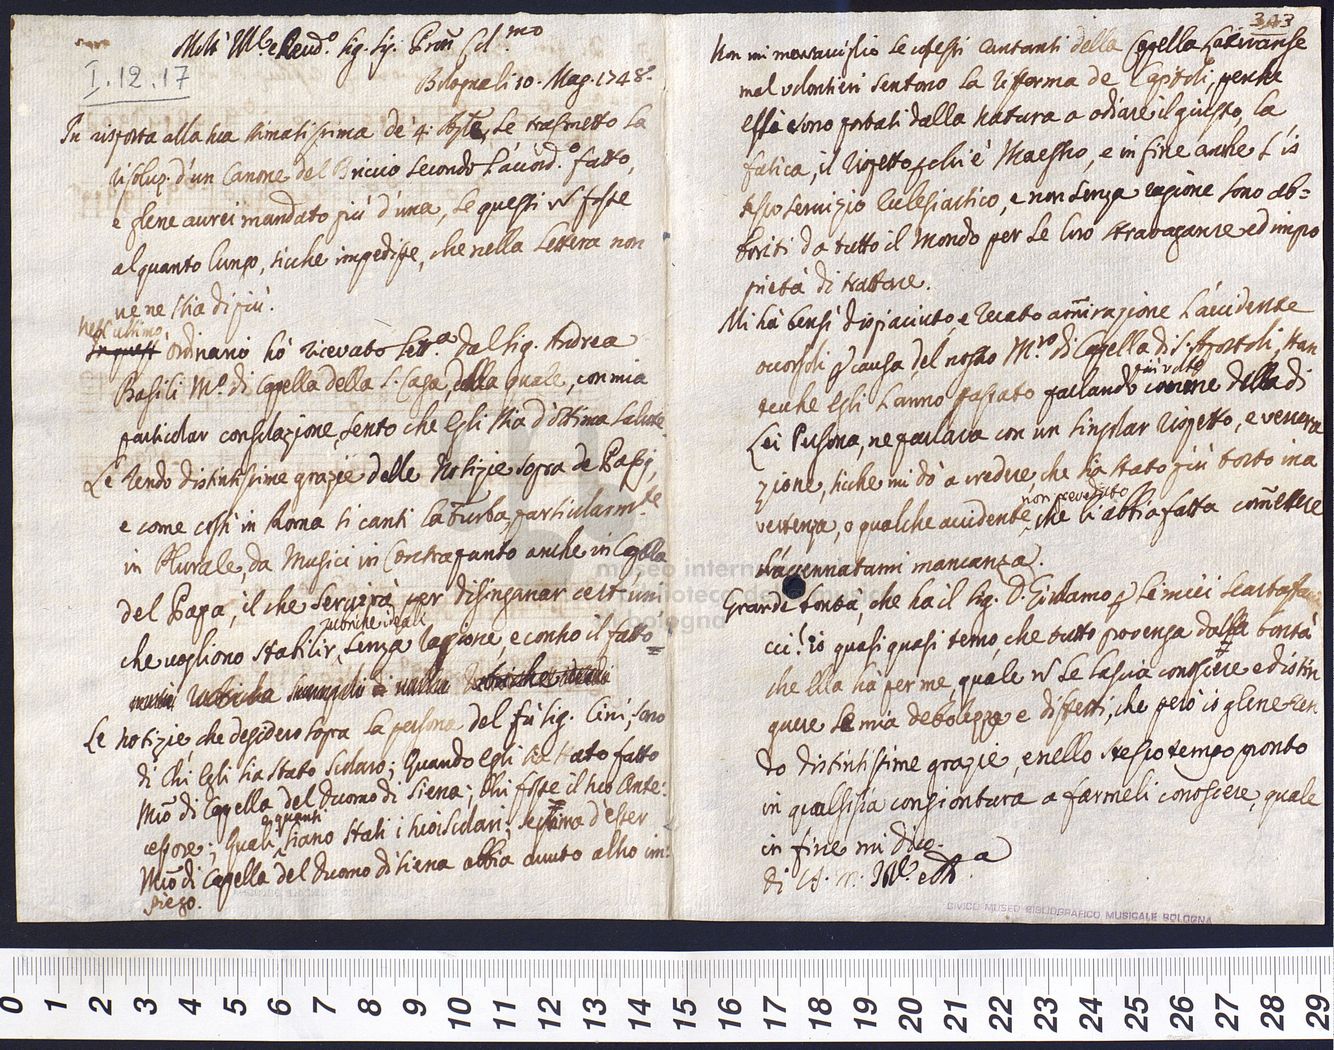 I.12.17
Molt' Ill.e e Revd.o Sig. Sig. Pron Col.mo
Bologna li 10. Mag. 1748.
In risposta alla sua stimatissima de 4. le trasmetto la
risoluz. d'un Canone del Briccio secondo l'avvid.o fatto,
e glene aurei mandato più d'una, se questi n̄ fosse
alquanto lungo, sicche impedisse, che nella Lettera non
ve ne stia di più.
Nell'ultimo
In questi ordinario hò ricevuto Lett.a dal Sig. Andrea
Basili M.o di Capella della S. Casa, dalla quale, con mia
particolar consolazione, sento che egli stia d'ottima salute.
Le rendo distintissime grazie delle notizie sopra de Passj,
e come costì in Roma si canti la Turba, particolarm.te
in Plurale, da Musici in Contrapunto anche in Capella
del Papa, il che servirà per disinganar certuni
rubriche ideali
che vogliono stabilir, senza ragione, e contro il fatto
Le notizie che desidero sopra la persona del fù Sig. Cini, sono
di chi egli sia stato scolaro; Quando egli sia stato fatto
Mro di Capella del Duomo di Siena; Chi fosse il suo Ante-
cessore; Quali, e quanti siano stati i suoi scolari; se prima d'esser
Mro di Capella del Duomo di Siena abbia avuto altro im-
piego.
343
Non mi meraviglio se cotesti Cantanti della Capella Lateranse
mal volontieri sentono la riforma de Capitoli, perche
essi sono portati dalla natura a odiare il giusto, la
fatica, il rispetto a chi è Maestro, e in fine anche l'is
tesso servizio Eclesiastico, e non senza ragione sono ab-
boriti da tutto il Mondo per le loro stravaganze ed impro
prietà di trattare.
Mi hà bensì dispiaciuto e recato amirazione l'accidente
occorsoli p causa del nostro M.ro di Capella di S. Apostoli, stan
teche egli l'anno passato parlando della di
Lei Persona, ne parlava con un singolar rispetto, e venera
zione, sicche mi dò a credere, che sia stato più tosto ina
non preveduto
vertenza, o qualche accidente, che li abbia fatta comettere
l'accennatami mancanza.
Grande bontà, che ha il Sig. D. Girolamo p le miei Scartafac
ci! Io quasi quasi temo, che tutto provenga dalla bontà
che ella hà per me, quale n̄ le lascia conoscere e distin
guere le mia debolezze e difetti, che però io glene ren
do distintissime grazie, e nello stesso tempo pronto
in qualsisia congiontura a farmeli conoscere, quale
in fine mi dico.
di
museo internazionale
biblioteca della musica
di bologna
CIVICO MUSEO BIBLIOGRAFICO MUSICALE BOLOGNA
0 1 2 3 4 5 6 7 8 9 10 11 12 13 14 15 16 17 18 19 20 21 22 23 24 25 26 27 28 29